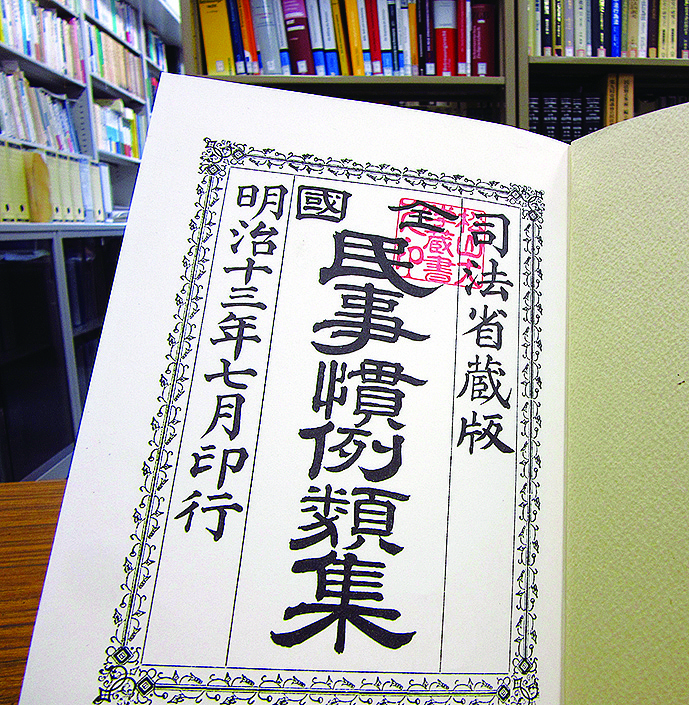 司法省蔵版
全國
民事慣例類集
明治十三年七月印行